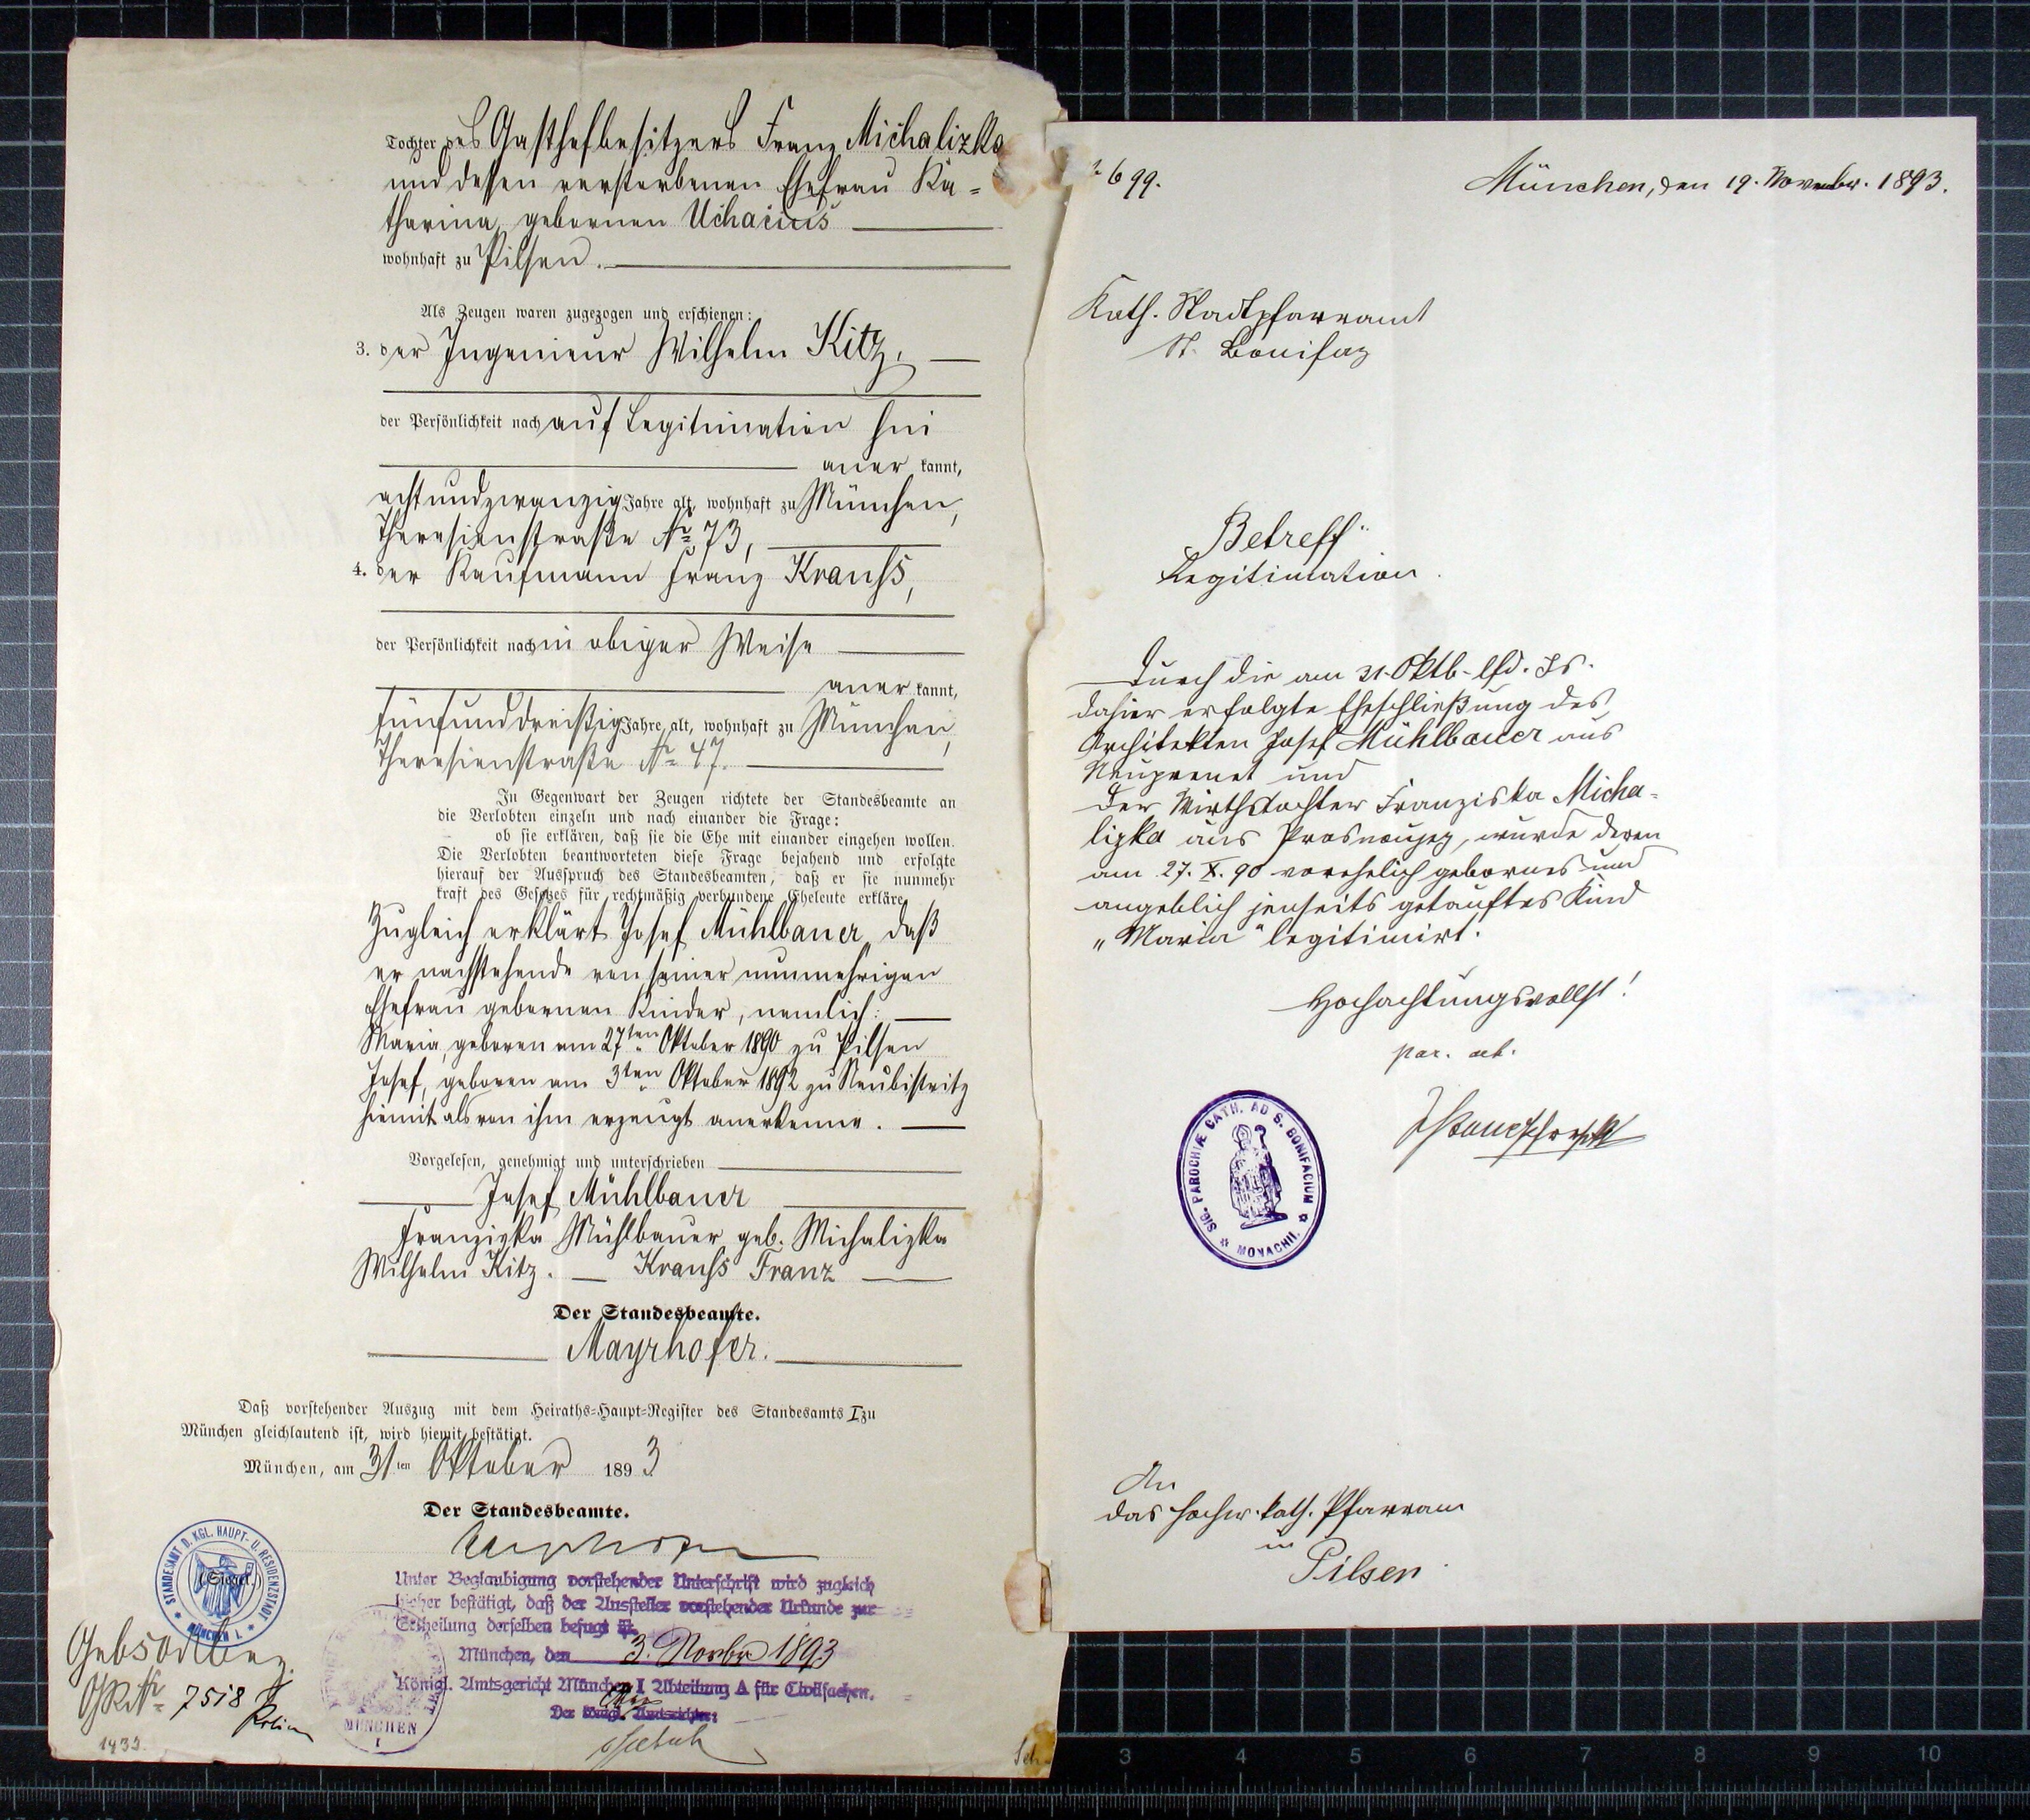 Tochter des Gasthofbesitzers Franz Michalizka
und dessen verstorbenen Ehefrau Ka=
tharina, gebornen Uchacius
wohnhaft zu Pilsen.
Als Zeugen waren zugezogen und erschienen:
3. der Ingenieur Wilhelm Kitz,
der Persönlichkeit nach auf Legitimation hin
aner kannt,
achtundzwanzig Jahre alt, wohnhaft zu München,
Theresienstraße No 73,
4. der Kaufmann Franz Krauss,
der Persönlichkeit nach in obiger Weise
aner kannt,
fünfunddreißig Jahre alt, wohnhaft zu München,
Theresienstraße No 47.
In Gegenwart der Zeugen richtete der Standesbeamte an
die Verlobten einzeln und nach einander die Frage:
ob sie erklären, daß sie die Ehe mit einander eingehen wollen.
Die Verlobten beantworteten diese Frage bejahend und erfolgte
hierauf der Ausspruch des Standesbeamten, daß er sie nunmehr
kraft des Gesetzes für rechtmäßig verbundene Eheleute erkläre.
Zugleich erklärt Josef Mühlbauer, daß
er nachstehende von seiner nunmehrigen
Ehefrau gebornen Kinder, nemlich:
Maria, geboren am 27ten Oktober 1890 zu Pilsen
Josef, geboren am 3ten Oktober 1892 zu Neubistritz
hiemit als von ihm erzeugt anerkenne.
Vorgelesen, genehmigt und unterschrieben
Josef Mühlbauer
Franziska Mühlbauer geb. Michalizka
Wilhelm Kitz. — Krauss Franz
Der Standesbeamte.
Mayrhofer.
Daß vorstehender Auszug mit dem Heiraths=Haupt=Register des Standesamts I zu
München gleichlautend ist, wird hiemit bestätigt.
München, am 31ten Oktober 1893
Der Standesbeamte.
(Siegel.)
STANDESAMT D. KGL. HAUPT- U. RESIDENZSTADT MÜNCHEN I.
Unter Beglaubigung vorstehender Unterschrift wird zugleich
hieher bestätigt, daß der Aussteller vorstehender Urkunde zur
Ertheilung derselben befugt ist.
München, den 3. Novbr 1893
Königl. Amtsgericht München I Abteilung A für Civilsachen.
Der Königl. Amtsrichter:
MÜNCHEN
I
No 7518
1933
Sch
No 699.
München, den 19. November. 1893.
Kath. Stadtpfarramt
St. Bonifaz
Betreff:
Legitimation.
Durch die am 31. Oktb. lfd. Js.
dahier erfolgte Eheschließung des
Architekten Josef Mühlbauer aus
Neuprenet und
der Wirthstochter Franziska Micha=
lizka aus Prosnoujez, wurde deren
am 27. X. 90 vorehelich gebornes und
angeblich jenseits getauftes Kind
„Maria" legitimirt.
Hochachtungsvollst!
SIG. PAROCHIÆ CATH. AD S. BONIFACIUM MONACHII.
An
das hochw. kath. Pfarramt
in
Pilsen
3 4 5 6 7 8 9 10